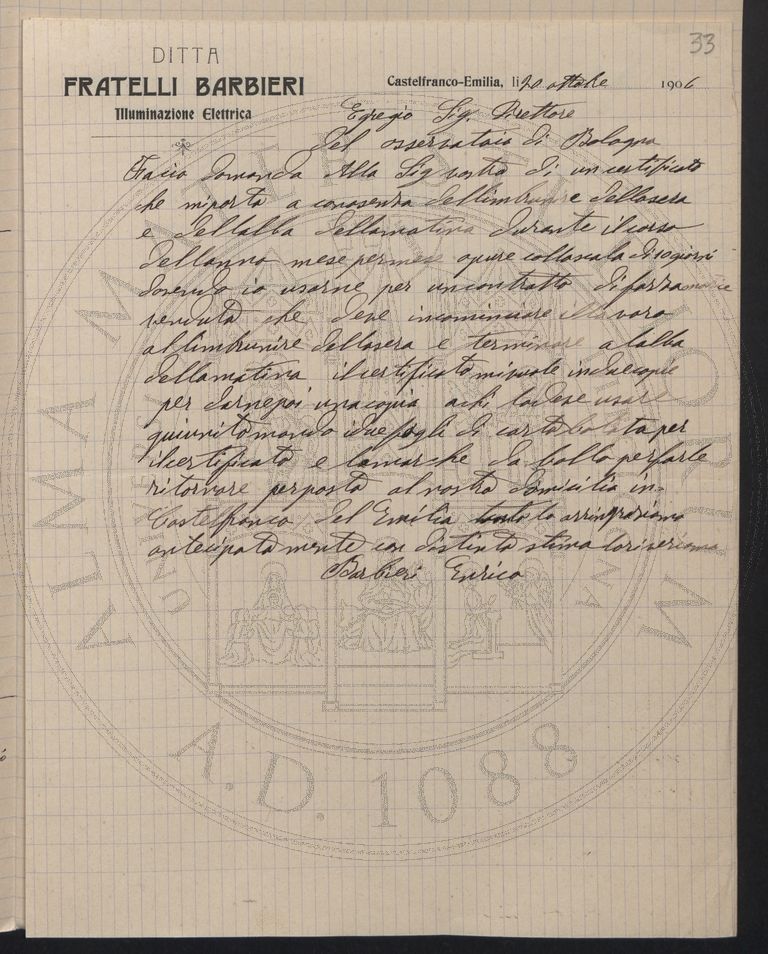 33
DITTA
FRATELLI BARBIERI
Illuminazione Elettrica
Castelfranco-Emilia, li 20 ottobre 1906
Egregio Sig. Direttore
del osservatoio di Bologna
Facio domanda Alla Sig vostra di un certificato
che miporta a conosenza dellimbrunire dellasera
e dellalba dellamatina durante il corso
dellanno mese permese opure collascala di 10 giorni
dovendo io usarne per uncontratto di forzamotrice
venduta che deve incominciare illavoro
allimbrunire dellasera e terminare alalba
dellamatina il certificato mivuole induecopie
per darnepoi unacopia achi lodese usare
quiunito mando iduefogli di carta bolata per
ilcertificato e lemarche da bollo perfarle
ritornare perposta al nostro domicilio in
Castelfranco del Emilia tanto la arringraziamo
antecipatamente con distinta stima lariveriamo
Barbieri Enrico
ALMA MATER STUDIORUM
A.D. 1088